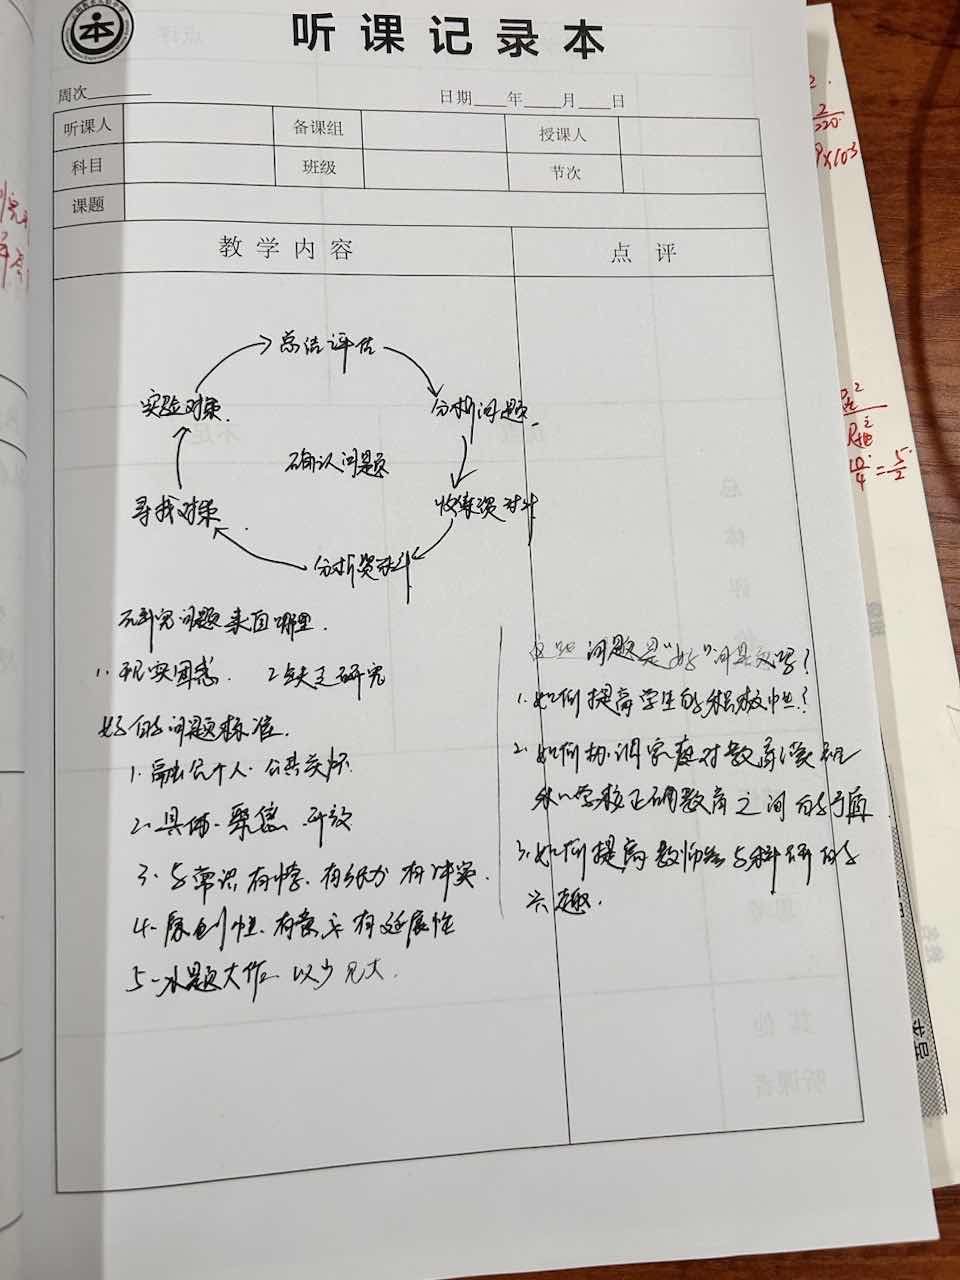 本
听课记录本
周次
日期 年 月 日
听课人 备课组 授课人
科目 班级 节次
课题
教学内容 点评
总结评估
实验对策. 分析问题.
确认问题
寻找对策. 收集资料
分析资料
研究问题来自哪里.
1. 现实困惑. 2 缺乏研究
好的问题标准.
1. 融合个人. 公共关怀.
2. 具体. 聚焦. 开放
3. 与常识有悖. 有张力 有冲突.
4. 原创性. 有意义 有延展性
5. 小题大作 以少见大.
这些问题是“好”问题吗?
1. 如何提高学生的积极性?
2. 如何协调家庭对教育
和学校正确教育之间的矛盾.
3. 如何提高教师参与科研的
兴趣.